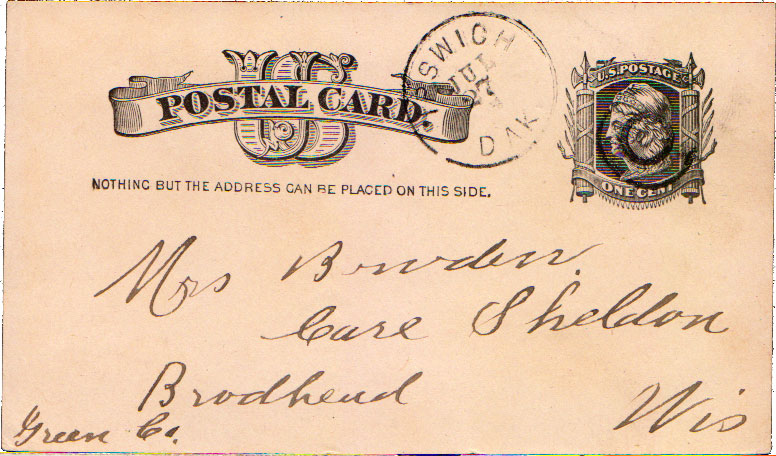 US
POSTAL CARD.
SWICH
JUL
27
DAK.
U.S. POSTAGE
ONE CENT
NOTHING BUT THE ADDRESS CAN BE PLACED ON THIS SIDE.
Mrs Bowden
Care Sheldon
Brodhead
Wis
Green Co.